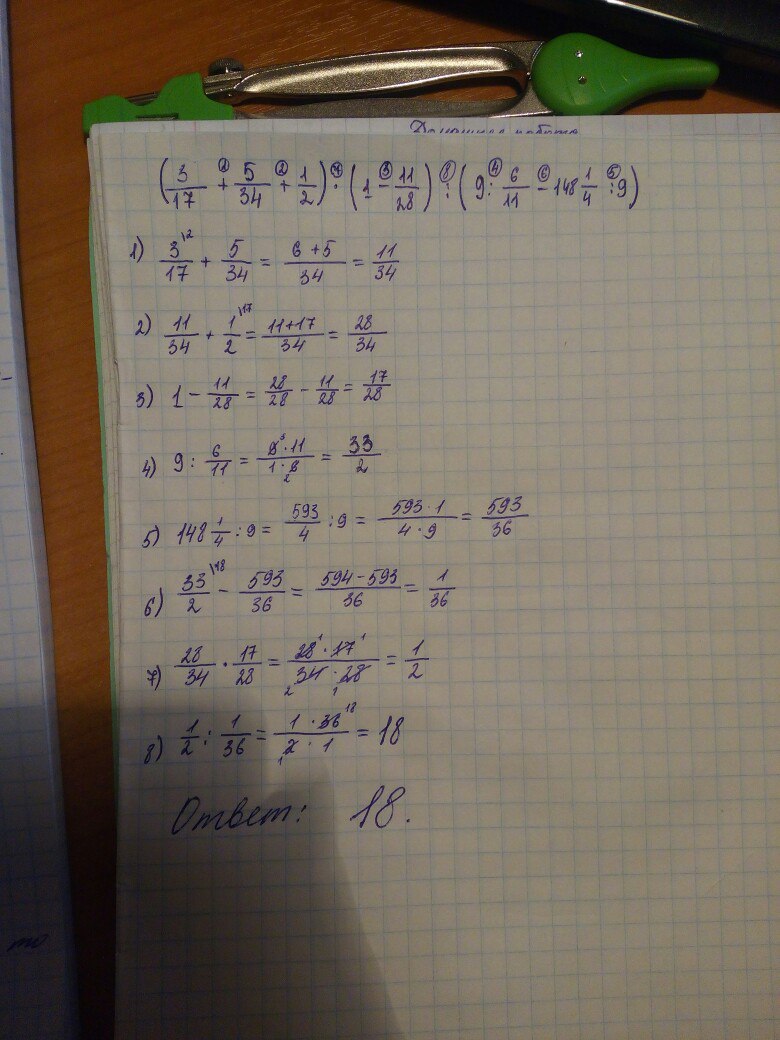 Домашняя работа
(3/17 + 5/34 + 1/2) · (1 - 11/28) : (9 : 6/11 - 148 1/4 : 9)
1) 3/17 + 5/34 = 6+5/34 = 11/34
2) 11/34 + 1/2 = 11+17/34 = 28/34
3) 1 - 11/28 = 28/28 - 11/28 = 17/28
4) 9 : 6/11 = 9·11/1·6 = 33/2
5) 148 1/4 : 9 = 593/4 : 9 = 593·1/4·9 = 593/36
6) 33/2 - 593/36 = 594-593/36 = 1/36
7) 28/34 · 17/28 = 28·17/34·28 = 1/2
8) 1/2 : 1/36 = 1·36/2·1 = 18
Ответ: 18.